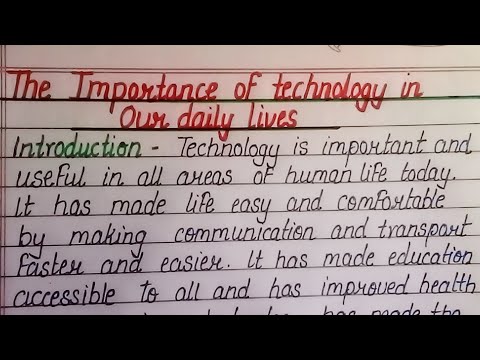 The Importance of technology in
Our daily lives
Introduction - Technology is important and
useful in all areas of human life today.
It has made life easy and comfortable
by making communication and transport
faster and easier. It has made education
accessible to all and has improved health
has made the